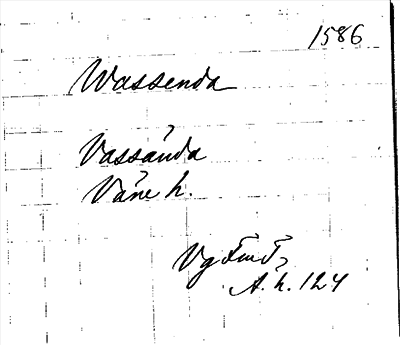 1586
Wassenda
Vassända
Väne h.
Vg
A. h. 124